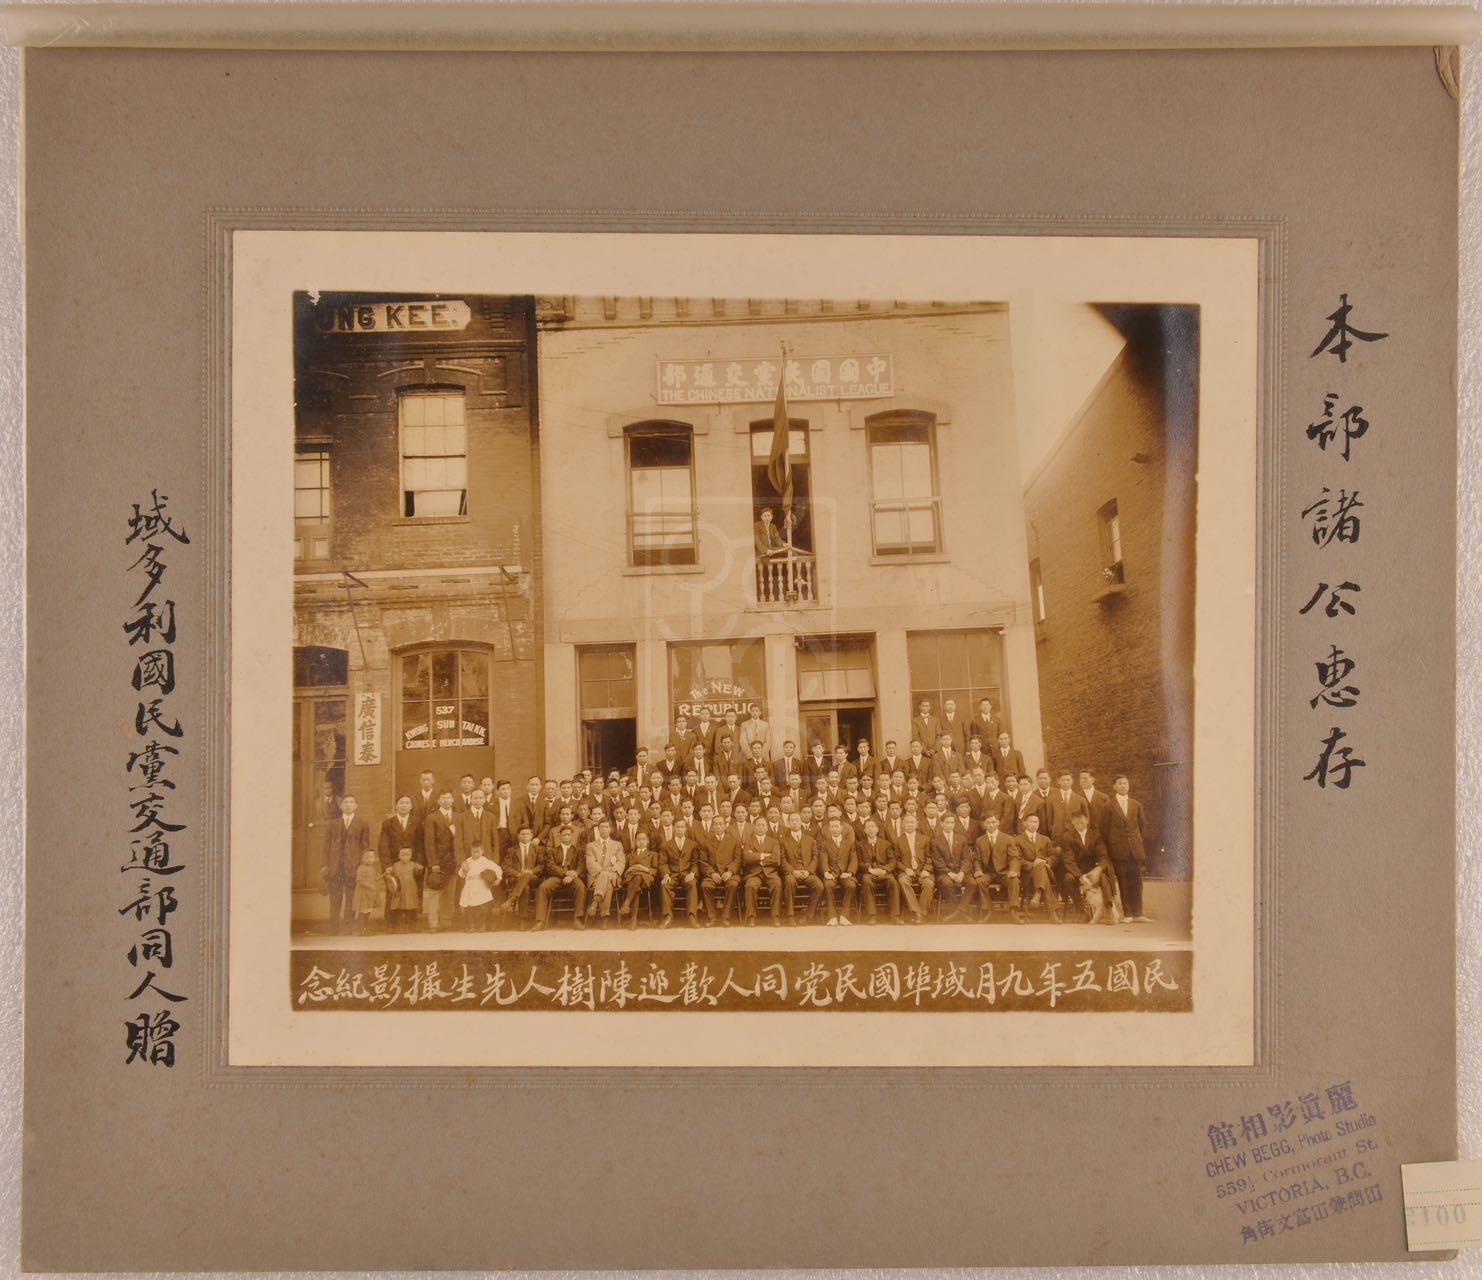 本部諸公惠存
UNG KEE.
中國國民黨交通部
THE CHINESE NATIONALIST LEAGUE
The NEW
REPUBLIC
廣信泰
537
KWONG SUN TAI
CHINESE MERCHANDISE
民國五年九月域埠國民党同人歡迎陳樹人先生撮影紀念
域多利國民黨交通部同人贈
館相影真麗
CHEW BEGG, Photo Studio
559½ Cormorant St.
VICTORIA, B.C.
角街文富
100